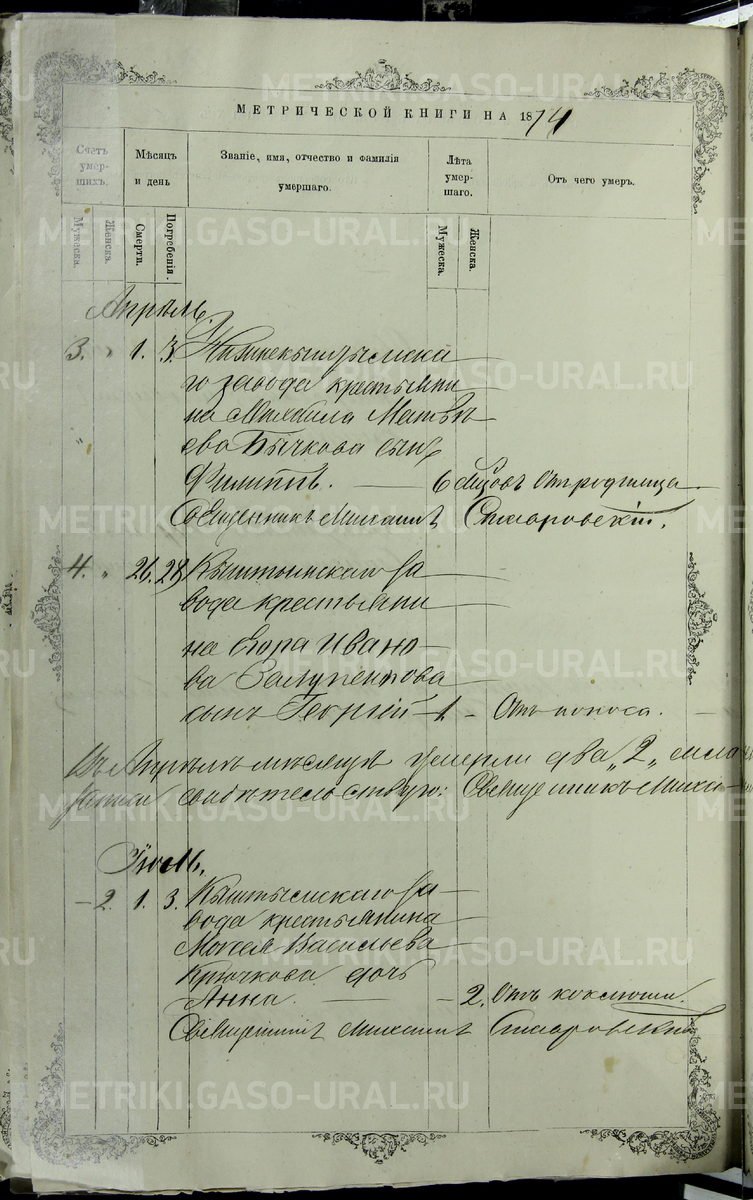 МЕТРИЧЕСКОЙ КНИГИ НА 1874
Счетъ умерших.
Мѣсяцъ и день
Званіе, имя, отчество и фамилія умершаго.
Лѣта умершаго.
Отъ чего умеръ.
Мужеска.
Женска.
Смерти.
Погребенія.
Мужеска.
Женска.
Апрѣль.
3. " 1. 3. Нижнекыштымска
го завода крестьяни
на Михаила Матвѣ
ева Бычкова сынъ
Филиппъ. 6 мѣсяцовъ От родимца.
Священникъ Михаилъ
4. " 26. 28. Кыштымскаго за
вода крестьяни
на Егора Ивано
ва
сынъ Георгій 1 Отъ поноса.
Въ Апрѣлѣ мѣсяцѣ умерли два „2„
свидѣтельствую: Священникъ
Іюль.
2. 1. 3. Кыштымскаго за
вода крестьянина
Васильева
Крючкова дочь
Анна. 2. Отъ коклюша.
Священникъ Михаилъ
METRIKI.GASO-URAL.RU